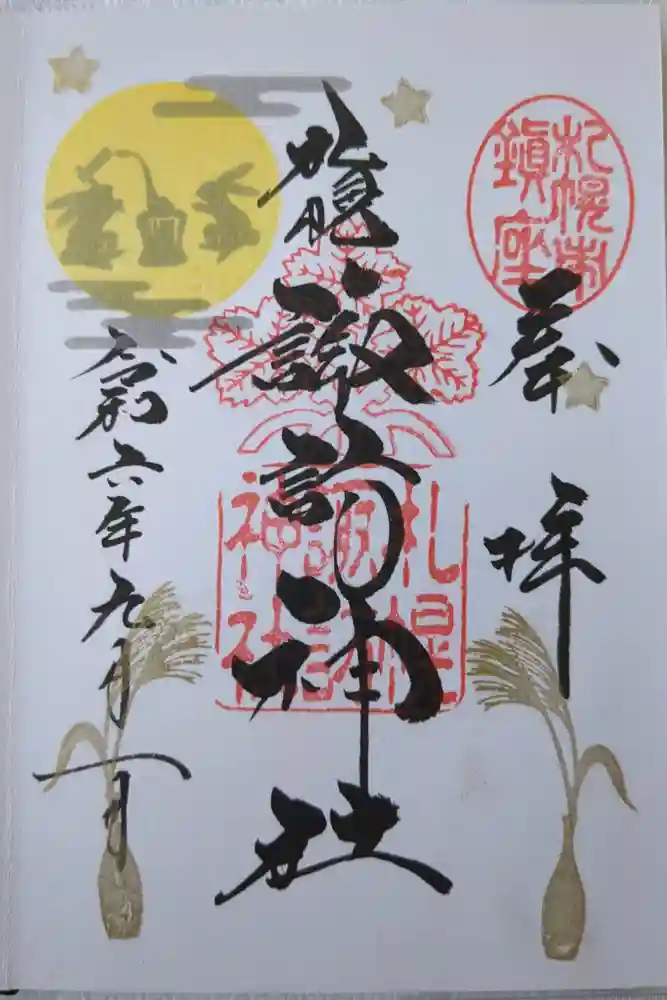 札幌市
鎮座
奉拝
諏訪神社
札幌
諏訪
神社
令和六年九月一日